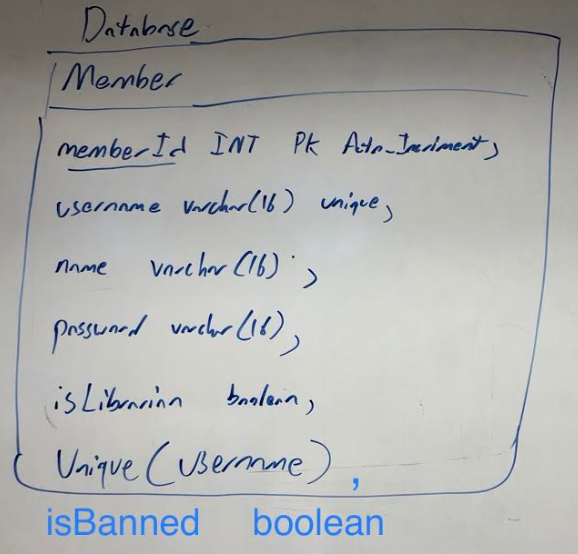 Database
Member
memberId INT PK Auto_Incriment,
username varchar(16) unique,
name varchar(16),
password varchar(16),
isLibrarian boolean,
Unique(Username),
isBanned boolean